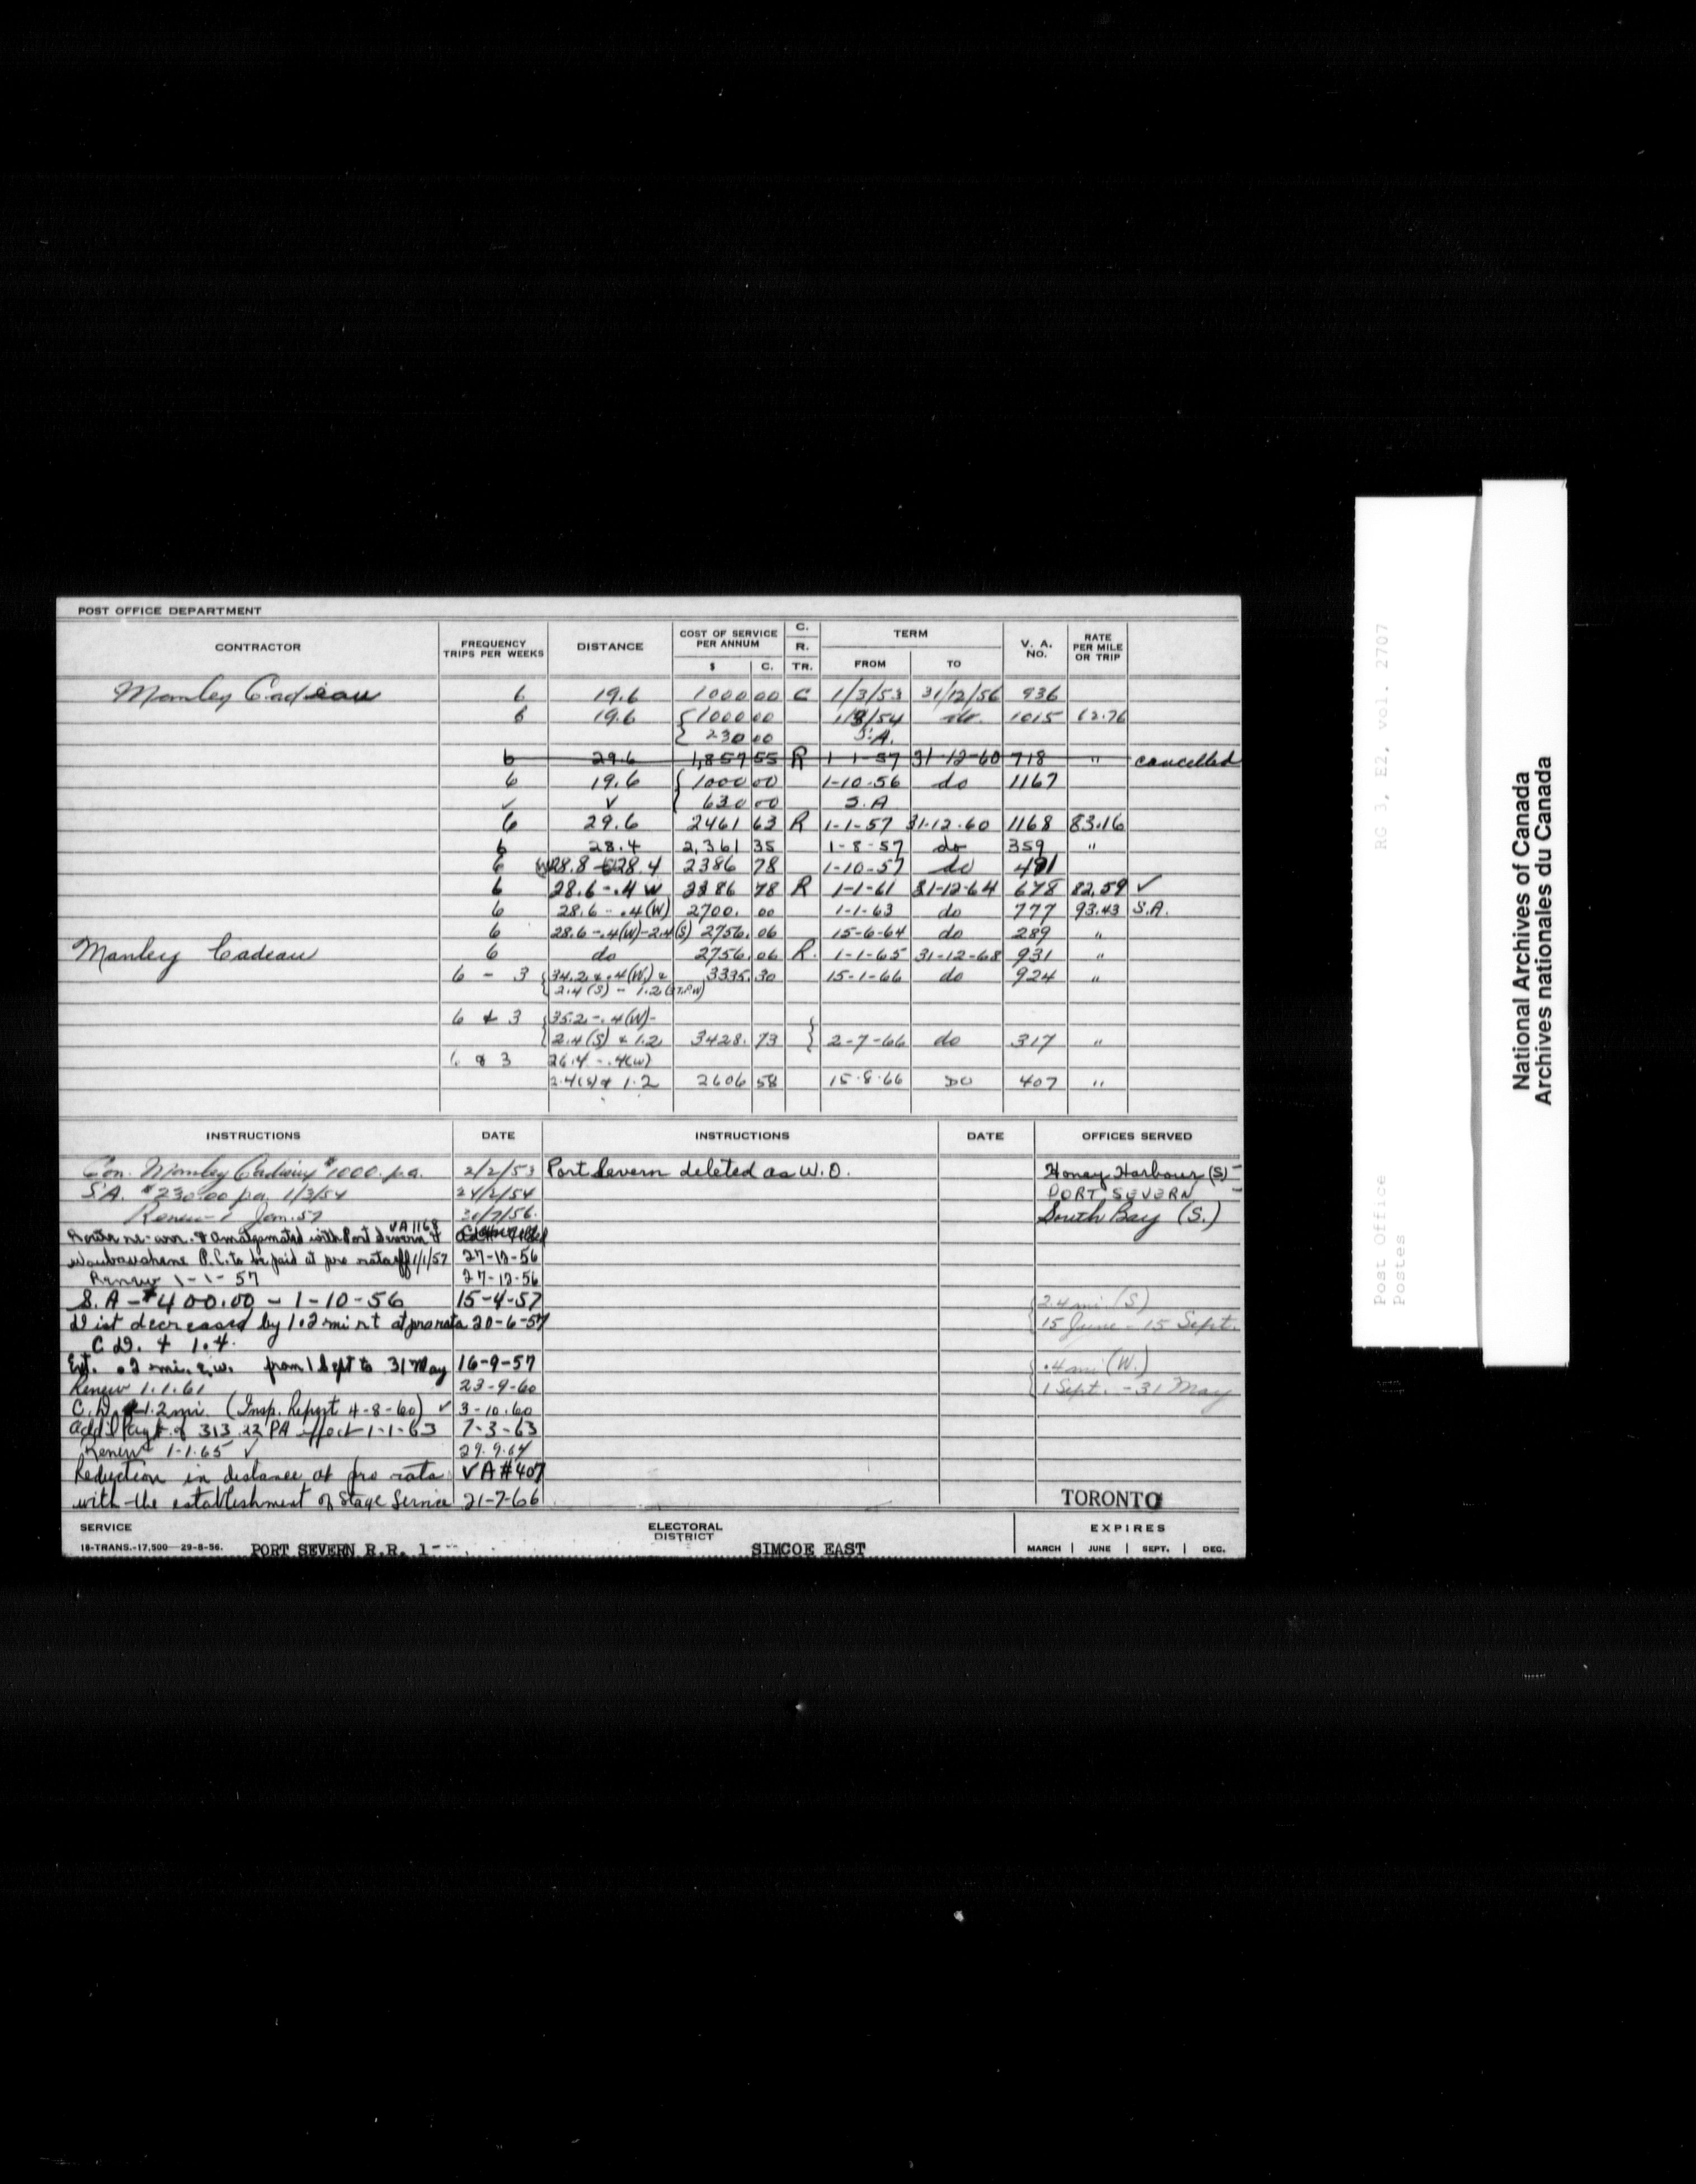 POST OFFICE DEPARTMENT
CONTRACTOR FREQUENCY TRIPS PER WEEKS DISTANCE COST OF SERVICE PER ANNUM $ C. C. R. TR. TERM FROM TO V. A. NO. RATE PER MILE OR TRIP
Manley Cadeau 6 19.6 1000 00 C 1/3/53 31/12/56 936
6 19.6 { 1000 00 1/3/54 do. 1015 62.76
{ 230 00 S.A.
6 29.6 1,857 55 R 1-1-57 31-12-60 718 " cancelled
6 19.6 { 1000 00 1-10-56 do 1167
✓ ✓ { 630 00 S.A
6 29.6 2461 63 R 1-1-57 31.12.60 1168 83.16
6 28.4 2,361 35 1-8-57 do 359 "
6 (W)28.8 - (S)28.4 2386 78 1-10-57 do 491
6 28.6 - .4 W 2386 78 R 1-1-61 31-12-64 678 82.59 ✓
6 28.6 - .4(W) 2700. 00 1-1-63 do 777 93.43 S.A.
6 28.6 - .4(W)-2.4(S) 2756. 06 15-6-64 do 289 "
Manley Cadeau 6 do 2756. 06 R. 1-1-65 31-12-68 931 "
6 - 3 { 34.2 & .4(W.) & 3335. 30 15-1-66 do 924 "
2.4(S) - 1.2(3T.P.W)
6 & 3 { 35.2 - .4(W)-
2.4(S) & 1.2 3428. 73 } 2-7-66 do 317 "
6 & 3 26.4 - .4(W)
2.4(S) & 1.2 2606 58 15-8-66 DO 407 "
INSTRUCTIONS DATE INSTRUCTIONS DATE OFFICES SERVED
Con. Manley $1000. p.a. 2/2/53 Port Severn deleted as W.O. Honey Harbour (S)-
S.A. $230.00 p.a. 1/3/54 24/2/54 PORT SEVERN -
Renew 1 Jan. 57 /7/56. South Bay (S.)
VA 1168
Route re-arr. & amalgamated with Port Severn &
Waubaushene P.C. to be paid at pro rata eff 1/1/57 27-12-56
Renew 1-1-57 27-12-56
S.A - $400.00 - 1-10-56 15-4-57 2.4 mi. (S)
Dist decreased by 1.2 mi rt at pro rata 20-6-57 15 June - 15 Sept.
C.D. & 1.4.
Ext. .2 mi. e.w. from 1 Sept to 31 May 16-9-57 .4 mi (W.)
Renew 1.1.61 23-9-60 1 Sept. - 31 May
C.D. 1.2 mi. (Insp. Report 4-8-60) ✓ 3-10-60
Add'l Paymt. of 313.22 PA effect 1-1-63 7-3-63
Renew 1-1-65 ✓ 29.9.64
Reduction in distance at pro rata VA#407
with the establishment of Stage Service 21-7-66 TORONTO
SERVICE ELECTORAL DISTRICT EXPIRES
18-TRANS.-17,500 29-8-56. PORT SEVERN R.R. 1 SIMCOE EAST MARCH | JUNE | SEPT. | DEC.
RG 3, E2, vol. 2707
Post Office
Postes
National Archives of Canada
Archives nationales du Canada